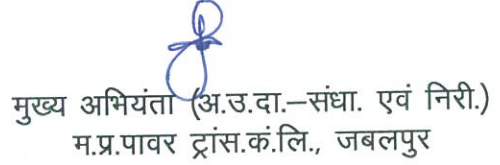 मुख्य अभियंता (अ.उ.दा.–संधा. एवं निरी.)
म.प्र.पावर ट्रांस.कं.लि., जबलपुर